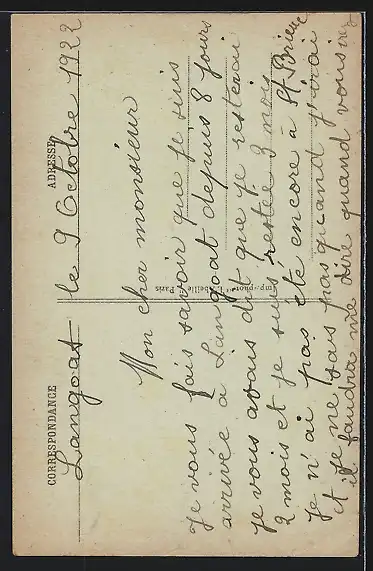 CORRESPONDANCE ADRESSE
Langoat le 9 Octobre 1922
Mon cher monsieur
Je vous fais savoir que je suis
arrivée a Langoat depuis 8 jours
je vous avais dit que je resterai
2 mois et je suis restée 3 mois
Je n'ai pas été encore a St Brieuc
et je ne sais pas quand j'irai
il faudra me dire quand vous irez
Imp.-phot. Abeille Paris